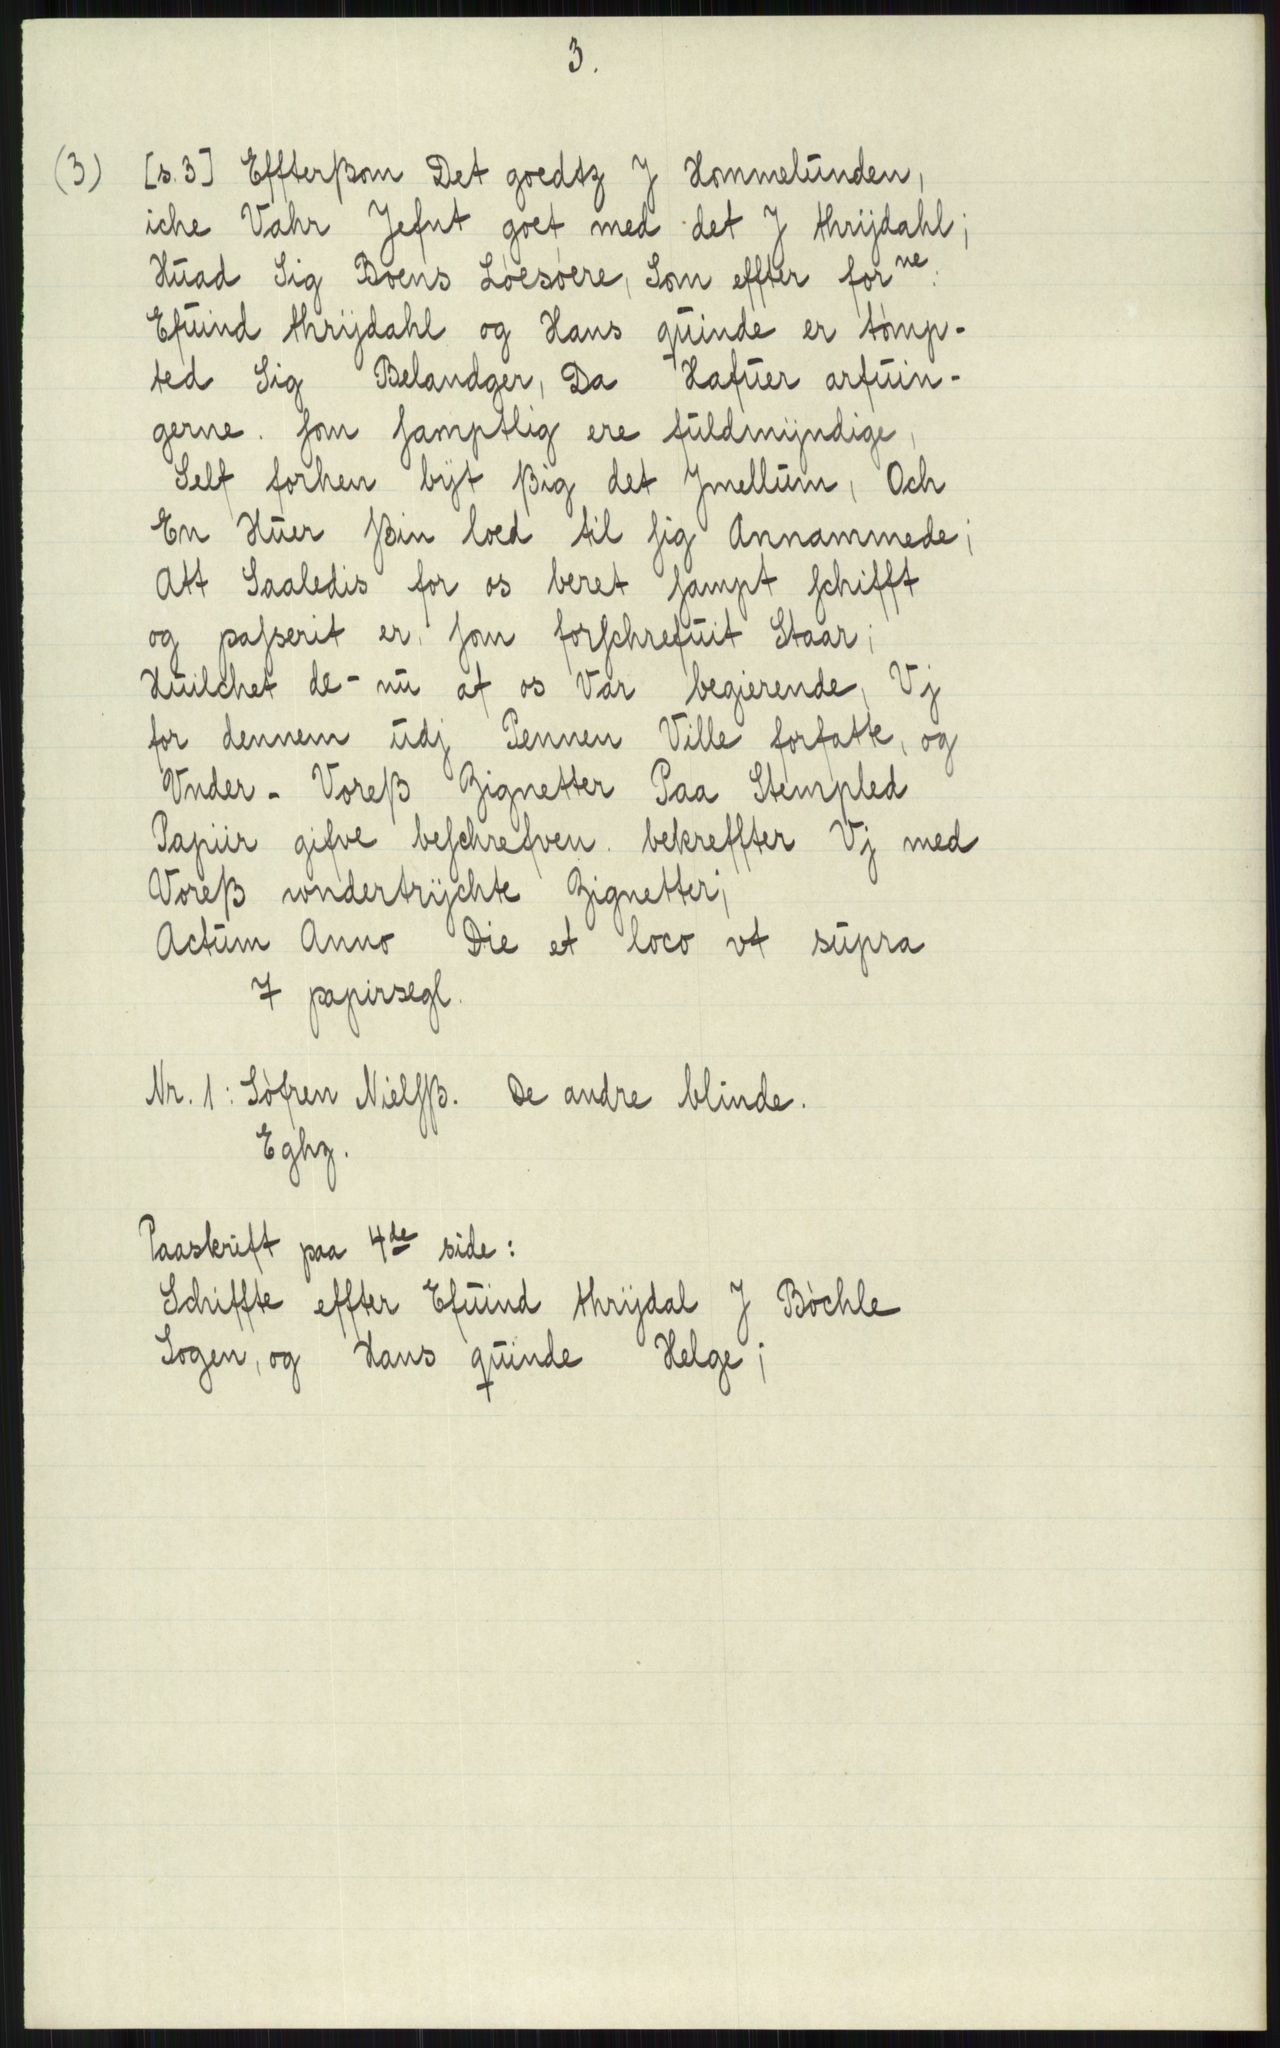 3.
(3) [s.3] Effterßom Det goedtz J Hommelunden,
iche Vahr Jefnt goet med det J thrijdahl;
Huad Sig Boens Løesøere, Som effter for ne:
Efuind thrijdahl og Hans quinde er tømp-
ted Sig Belandger, Da Hafuer arfuin-
gerne. som samptlig ere fuldmÿndige,
Self forhen bÿt ßig det Jmellum, Och
En Huer ßin loed til sig Annammede;
Att Saaledis for os beret sampt schifft
og passerit er, som forschrefuit Staar;
Huilchet de- nu af os Var begierende, Vj
for dennem udj Pennen Ville forfatte, og
Vnder- Voreß Zignetter Paa Stempled
Papiir gifve beschrefven. bekreffter Vj med
Voreß wndertrÿchte Zignetter;
Actum Anno Die et loco vt supra
7 papirsegl.
Nr. 1: Søfren Nielsß. De andre blinde.
Eghz.
Paaskrift paa 4de side:
Schiffte effter Efuind thrijdal J Bøchle
Sogen, og Hans quinde Helge;